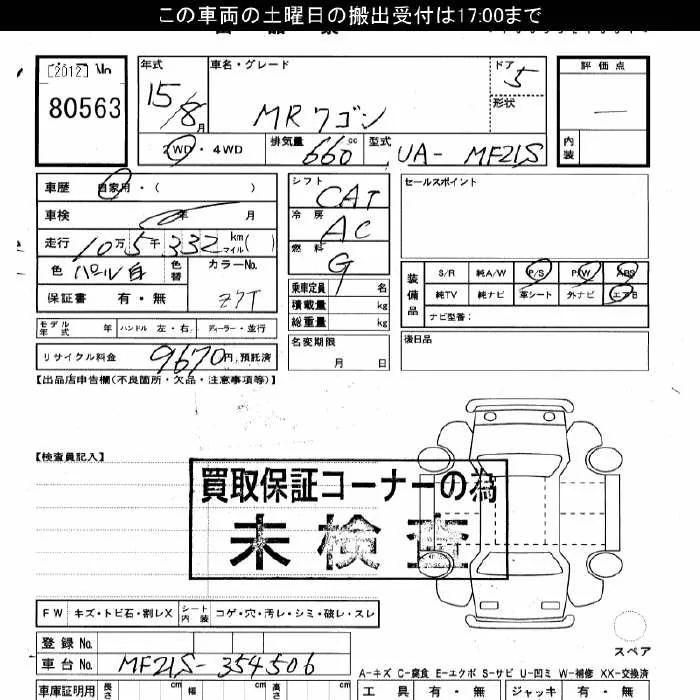 この車両の土曜日の搬出受付は17:00まで
[2012] No
80563
年式 15/8月
車名・グレード MRワゴン
ドア 5
形状
評価点 —
内装
2WD・4WD
排気量 660 cc
型式 UA- MF21S
車歴 自家用・( )
車検 年 月
走行 10万5千332 km マイル( )
色 パール白 色替 カラーNo. Z7T
保証書 有・無
シフト CAT
冷房 AC
燃料 G
乗車定員 名
積載量 kg
総重量 kg
セールスポイント
装備品 S/R 純A/W P/S P/W ABS
純TV 純ナビ 革シート 外ナビ エアB
ナビ型番:
モデル年式 年 ハンドル 左・右 ディーラー・並行
リサイクル料金 9670円,預託済
名変期限 月 日
後日品
【出品店申告欄(不良箇所・欠品・注意事項等)】
【検査員記入】
買取保証コーナーの為
未検査
FW キズ・トビ石・割レX シート内装 コゲ・穴・汚レ・シミ・破レ・スレ
スペア
登録No.
車台No. MF21S-354506
A-キズ C-腐食 E-エクボ S-サビ U-凹ミ W-補修 XX-交換済
車庫証明用 長さ cm 幅 cm 高さ cm
工具 有・無 ジャッキ 有・無